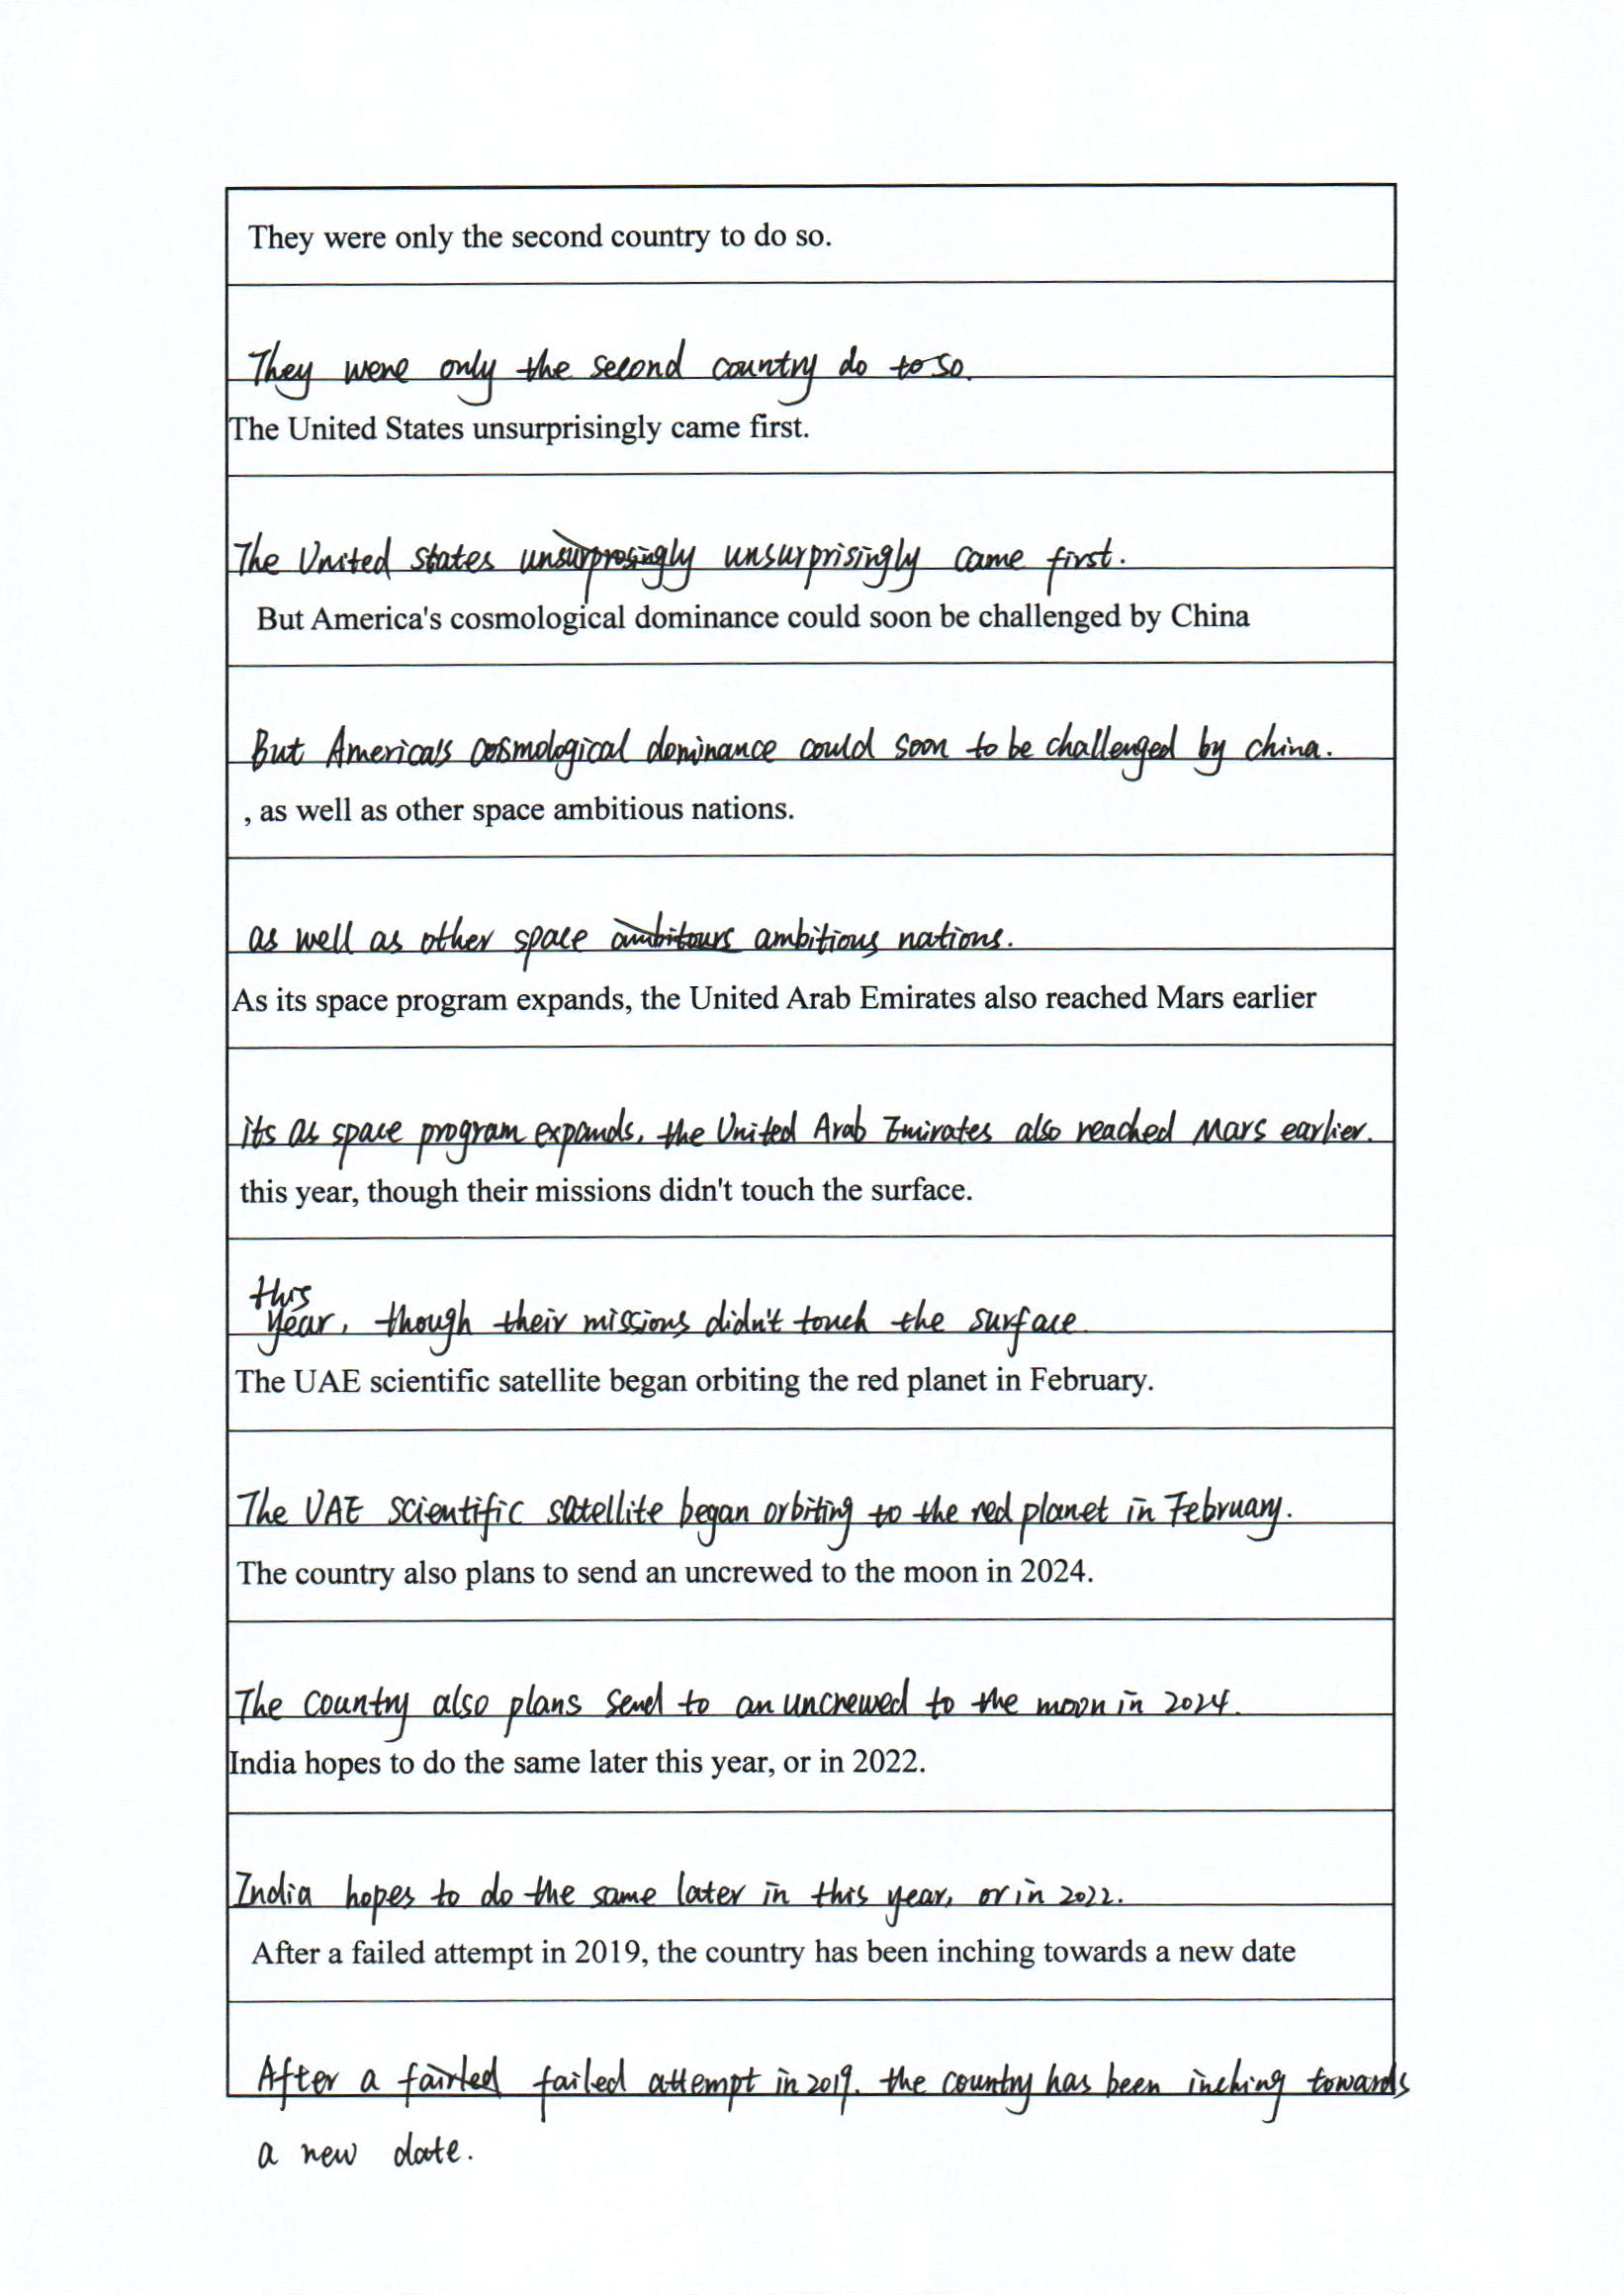 They were only the second country to do so.
They were only the second country do to so.
The United States unsurprisingly came first.
The United States unsurprosingly unsurprisingly came first.
But America's cosmological dominance could soon be challenged by China
But America's cosmological dominance could soon to be challenged by china.
, as well as other space ambitious nations.
as well as other space ambitours ambitious nations.
As its space program expands, the United Arab Emirates also reached Mars earlier
its as space program expands, the United Arab Emirates also reached Mars earlier.
this year, though their missions didn't touch the surface.
this
year, though their missions didn't touch the surface.
The UAE scientific satellite began orbiting the red planet in February.
The UAE scientific satellite began orbiting to the red planet in February.
The country also plans to send an uncrewed to the moon in 2024.
The country also plans send to an uncrewed to the moon in 2024.
India hopes to do the same later this year, or in 2022.
India hopes to do the same later in this year, or in 2022.
After a failed attempt in 2019, the country has been inching towards a new date
After a fairled failed attempt in 2019. the country has been inching towards
a new date.